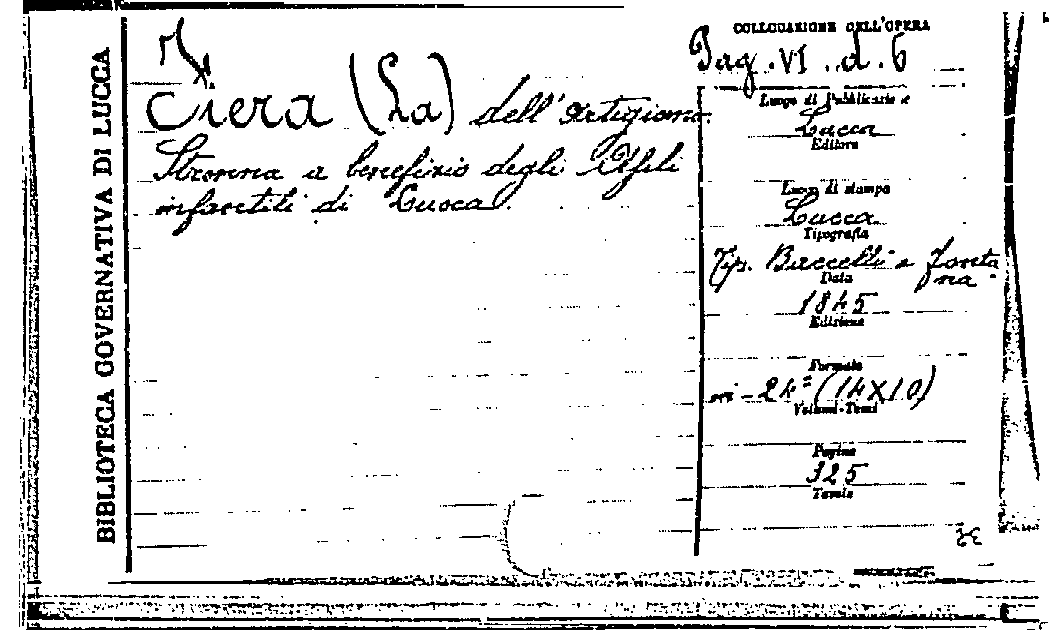 BIBLIOTECA GOVERNATIVA DI LUCCA
Fiera (La) dell'artigiano.
Strenna a benefizio degli Asili
infantili di Lucca.
COLLOCAZIONE DELL'OPERA
Pag. VI. d. 6
Luogo di Pubblicazione
Lucca
Editore
Luogo di stampa
Lucca
Tipografia
Tip. Baccelli e Fonta
na
Data
1845
Edizione
Formato
in-24° (14X10)
Volumi-Tomi
Pagine
125
Tavole